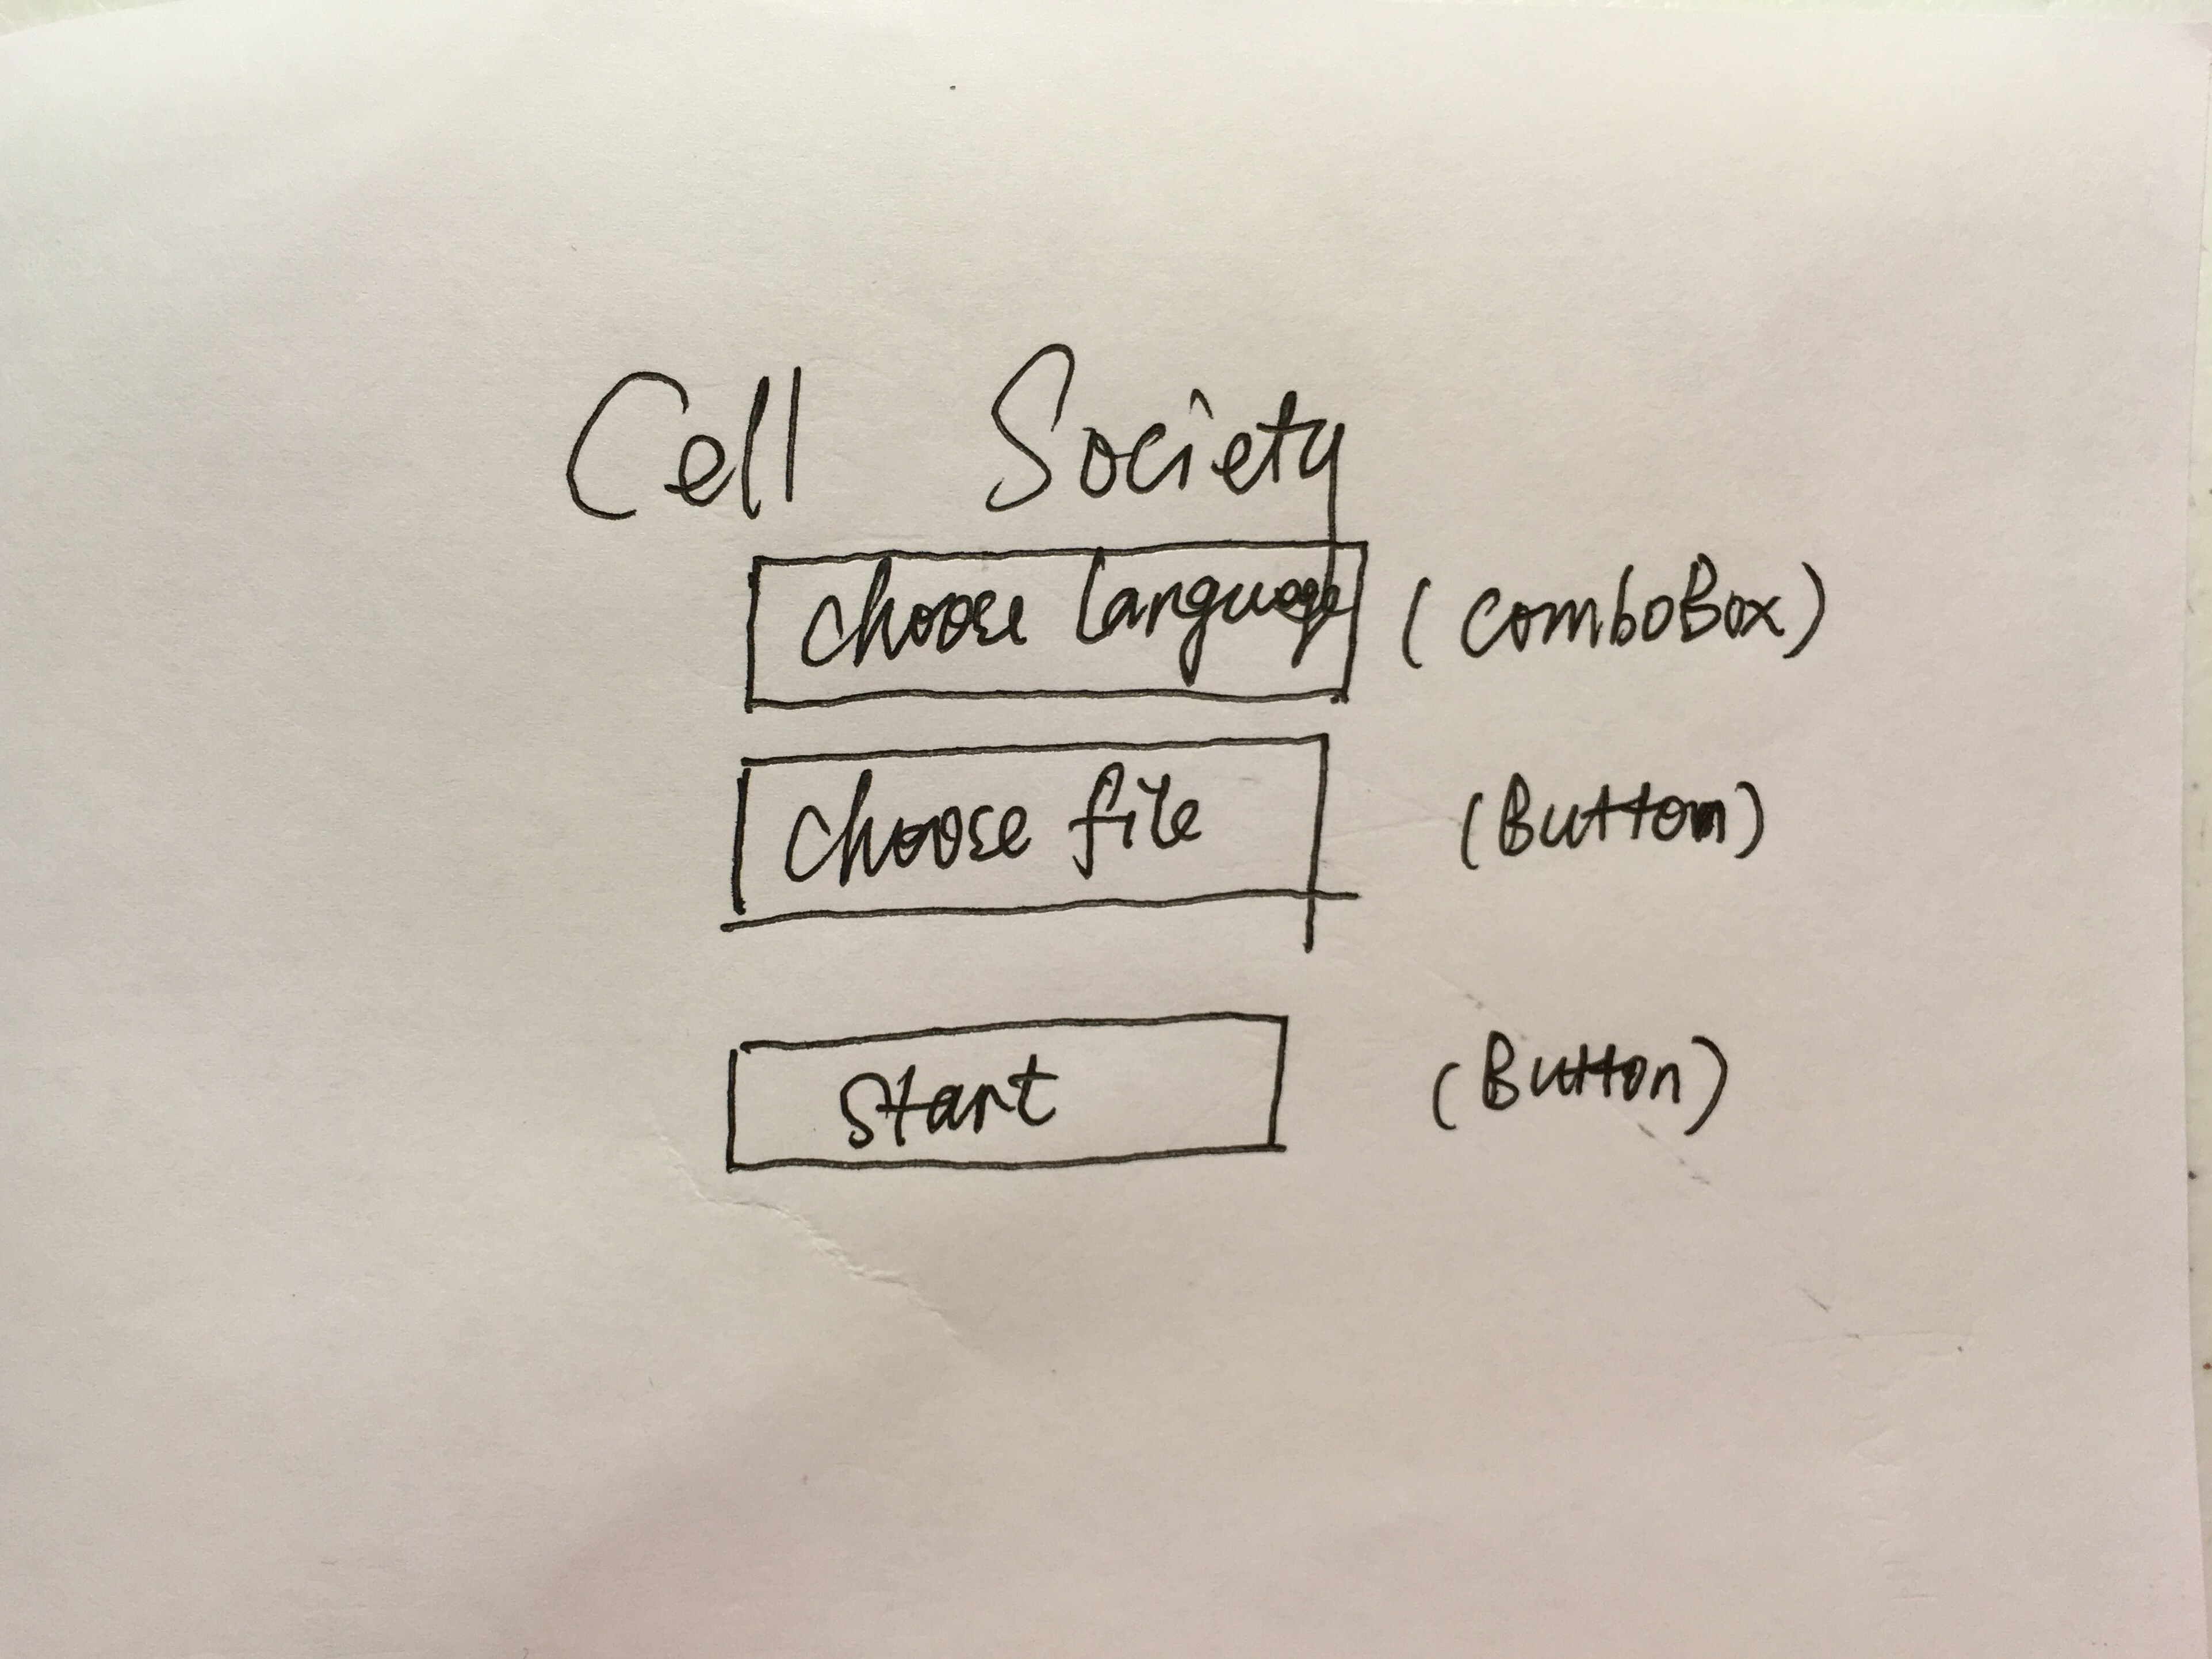 Cell Society
choose language (comboBox)
choose file (Button)
start (Button)